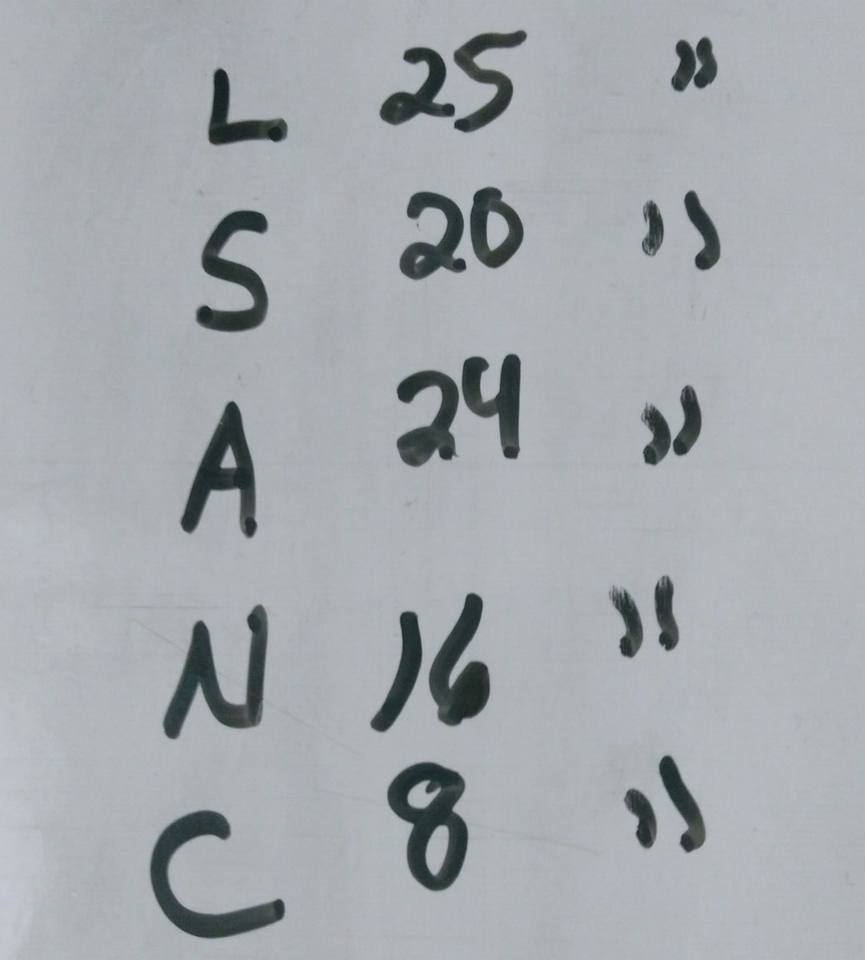 L 25 "
S 20 "
A 24 "
N 16 "
C 8 "